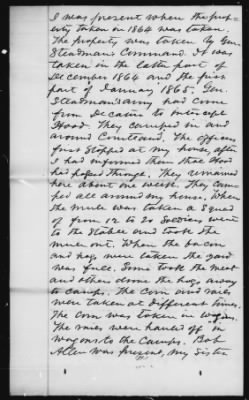 I was present when the prop-
erty taken in 1864 was taken.
The property was taken by Gen
Steadman's Command. It was
taken in the latter part of
December 1864 and the first
part of January 1865. Gen.
Steadman's army had come
from Decatur to intercept
Hood. They camped in and
around Courtland. The officers
first stopped at my house, after
I had informed them that Hood
had passed through. They remained
here about one week. They cam-
ped all around my house. When
the mule was taken a squad
of from 12 to 20 Soldiers went
to the stable and took the
mule out. When the bacon
and hogs were taken the yard
was full. Some took the meat
and others drove the hogs away
to camps. The corn and rails
were taken at different times.
The corn was taken in wagons.
The rails were hauled off in
wagons to the Camps. Bob
Allen was present, my sister